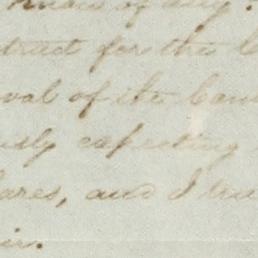 of any
tract for the
val of the Cam
usly expecting
ares, and I tru
ir.